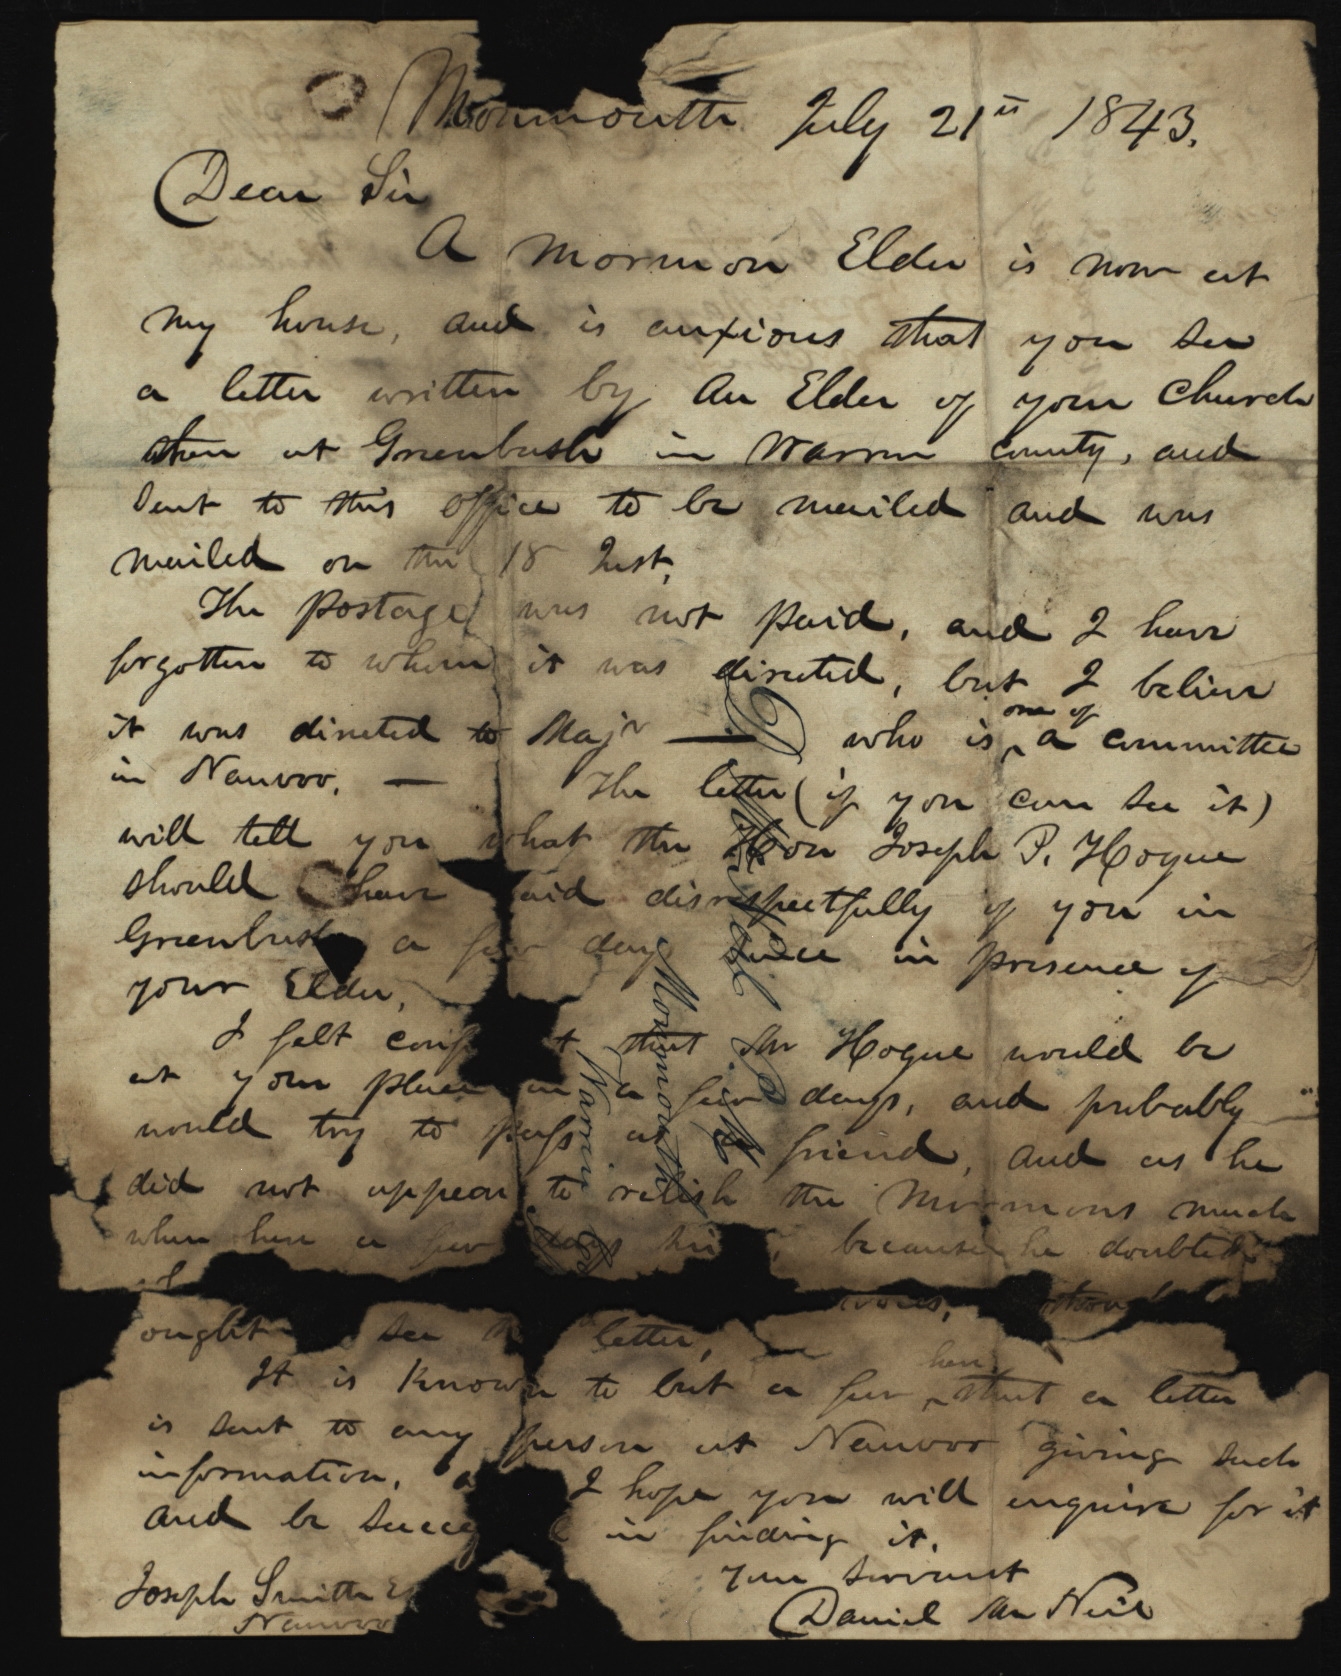 Monmouth July 21st 1843.
Dear Sir
A Mormon Elder is now at
my house, and is anxious that you see
a letter written by an Elder of your Church
then at Greenbush in Warren County, and
sent to this office to be mailed and was
mailed on the 18 Inst,
The postage was not paid, and I have
forgotten to whom it was directed, but I believe
it was directed to Majr — who is one of a committee
in Nauvoo. — The letter (if you can see it)
will tell you what the Hon Joseph P. Hogue
should have said disrespectfully of you in
Greenbush a few day since in presence of
your Elder,
I felt that Mr Hogue would be
at your place in a few days, and probably
would try to pass as friend, and as he
did not appear to relish the Mormons much
when here a few days because he doubted
ought see letter,
It is known to but a few here that a letter
is sent to any person at Nauvoo giving such
information, I hope you will enquire for it
and be in finding it.
Your Servant
Daniel McNeil
Joseph Smith Es
Nauvoo
D. McNeil P.M
Monmouth
Warren